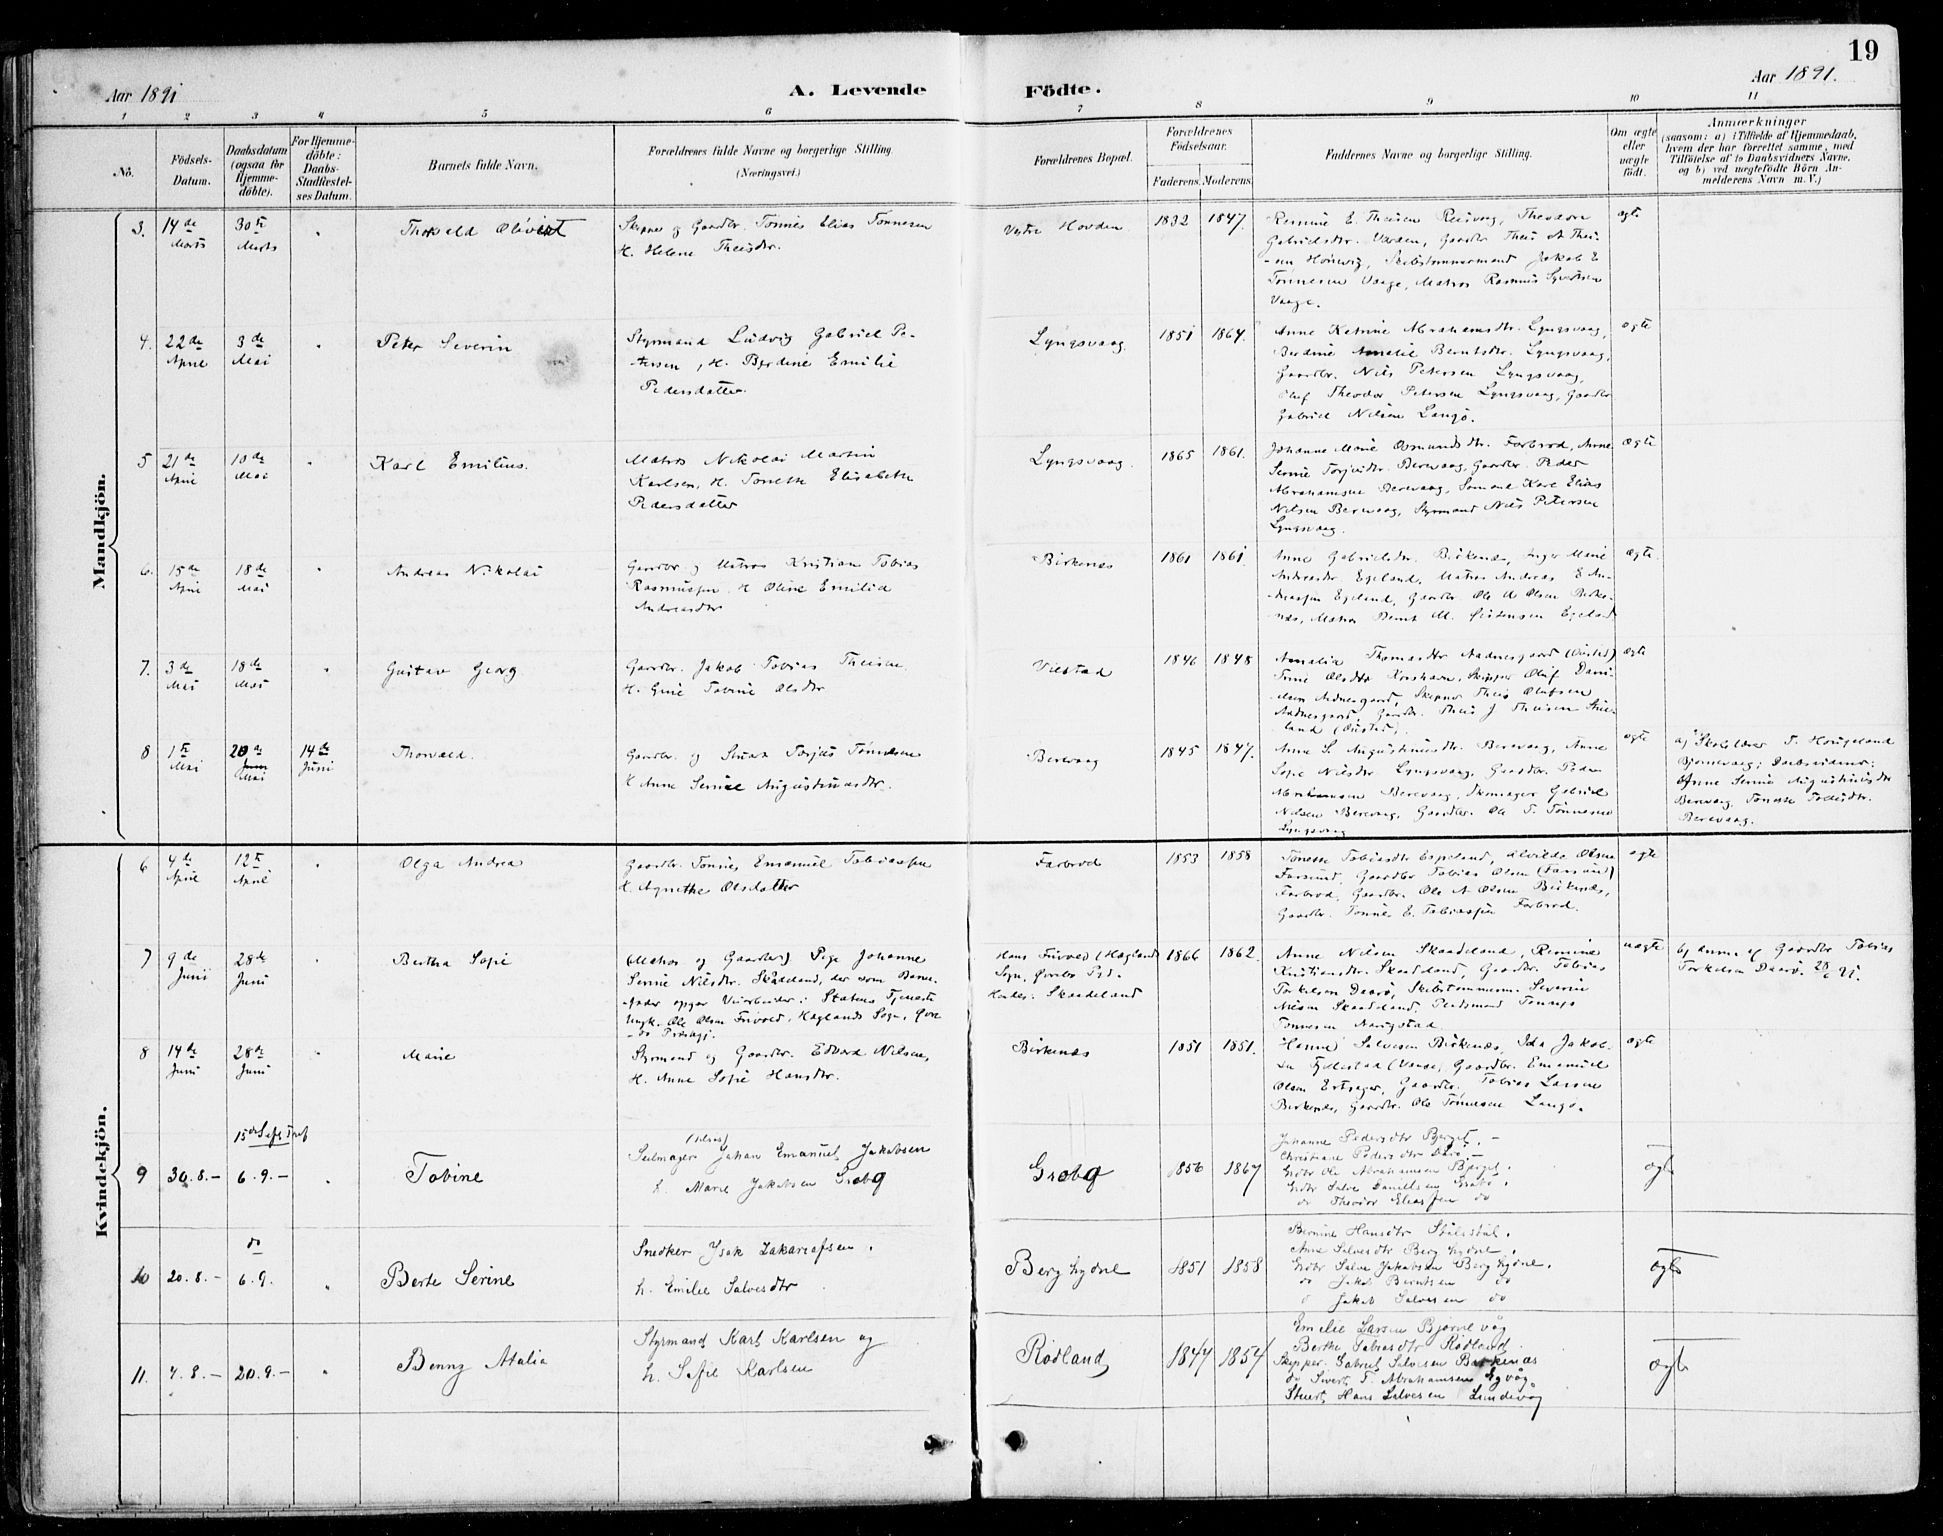 19
Aar 1891
A. Levende
Födte.
Aar 1891.
1 2 3 4 5 6 7 8 9 10 11
No.
Födsels-
Datum.
Daabsdatum
(ogsaa for
Hjemme-
döbte).
For Hjemme-
döbte:
Daabs-
Stadfæstel-
ses Datum.
Barnets fulde Navn.
Forældrenes fulde Navne og borgerlige Stilling.
(Næringsvei.)
Forældrenes Bopæl.
Forældrenes
Födselsaar.
Faderens.
Moderens.
Faddernes Navne og borgerlige Stilling.
Om ægte
eller
uægte
födt.
Anmærkninger
(saasom: a) i Tilfælde af Hjemmedaab,
hvem der har forrettet samme, med
Tilföielse af to Daabsvidners Navne.
og b) ved uægtefödte Börn An-
melderens Navn m. V.)
Mandkjön.
3. 14de Marts 30te Marts Thorvald Olivert
Skipper og Gaardbr. Tönnes Elias Tönnesen
H. Helene Theisdtr.
Vestre Hovden 1832 1847.
Theodora
Gabrielsdtr. Gaardbr Theis
Skibstømmermand Jakob E
Tönnesen Vaage, Matros Rasmus Syvertsen
Vaage.
ægte
4. 22de April 3de Mai Peter Severin
Styrmand Ludvig Gabriel Pe-
tersen, H. Berdine Emilie
Pedersdatter.
Lyngsvaag 1851 1864.
Anne Katrine Abrahamsdtr. Lyngsvaag,
Berdine Amalie Berntsdtr. Lyngsvaag,
Gaardbr. Nils Petersen Lyngsvaag,
Oluf Theodor Petersen Lyngsvaag, Gaardbr
Gabriel Nilsen Langø.
ægte
5 21de April 10de Mai Karl Emilius.
Matros Nikolai Martin
Karlsen, H. Tonette Elisabeth
Pedersdatter
Lyngsvaag. 1865 1861.
Johanne Marie Osmundsdtr. Farbrod, Anne
Serine Torjusdtr. Berevaag, Gaardbr. Peder
Abrahamsen Berevaag, Sømand Karl Elias
Nilsen Berevaag, Styrmand Nils Petersen
Lyngsvaag.
ægte
6. 15de April 18de Mai Andreas Nikolai
Gaardbr og Matros Kristian Tobias
Rasmussen H. Oline Emilia
Andreasdtr
Birkenes 1861 1861.
Anne Gabrielsdtr. Birkenæs, Inger Marie
Andreasdtr Egeland, Matros Andreas E An-
dreassen Egeland, Gaardbr. Ole A Olsen Birke-
næs, Matros Bernt M. Egeland
ægte
7. 3de Mai 18de Mai Gustav Georg
Gaardbr. Jakob Tobias Theisen,
H. Gine Tobine Olsdtr
1846 1848
Amalia Thomasdtr
Olsdtr Korshavn, Skipper Oluf Dani-
Skipper Theis Olufsen
Gaardbr. Theis J Theisen
ægte
8 1te Mai 20de Juni Mai 14de Juni Thorvald.
Gaardbr og Stuart Torjus Tönnesen
H. Anne Serine Augustinusdtr.
Berevaag 1845 1847.
Anne S. Augustinusdtr. Berevaag, Anne
Sofie Nilsdtr Lyngsvaag, Gaardbr. Peder
Abrahamsen Berevaag, Gabriel
Nilsen Berevaag, Gaardbr. Ole T. Tönnesen
Lyngsvaag
ægte
a) Skolelærer T. Hougeland
Bjørnevaag; Daabsvidner:
Anne Serine Augustinusdtr
Berevaag, Tonette
Berevaag.
Kvindekjön.
6 4de April 12te April Olga Andrea
Gaardbr. Tönnes Emanuel Tobiassen
H. Agnethe Olsdatter
Farbrod 1853 1858
Tonette Tobiasdtr Espeland, Alvilde Olsen
Farsund, Gaardbr Tobias Olsen (Farsund)
Farbrod, Gaardbr. Ole A Olsen Birkenæs,
Gaardbr. Tönnes E. Tobiassen Farbrod.
ægte
7 9de Juni 28de Juni Bertha Sofie
(Matros og Gaardbr) Pige Johanne
Serine Nilsdtr. Skådeland, der som Barne-
fader opgav Veiarbeider i Statens Tjeneste
Ungk. Ole Olsen Frivold, Haglands Sogn, Øvre-
bø Præstegj.
Hans Frivold (Hægland
Sogn, Øvrebø Pgd.
Hendes: Skaadeland
1866 1862.
Anne Nilsen Skaadeland, Romine
Kristiansdtr. Skaadeland, Gaardbr. Tobias
Torkelsen Daarø, Skibstømmerm. Severin
Nilsen Skaadeland, Tönnes
Tönnesen
uægte
b) anm. af Gaardbr Tobias
Torkelsen Daarø 28/6 91.
8 14de Juni 28de Juni Marie
Styrmand og Gaardbr. Edvard Nilsen,
H. Anne Sofie Hansdtr.
Birkenæs 1851 1851.
Hanne Salvesen Birkenæs, Ida Jakob-
sen (Vanse) Gaardbr. Emanuel
Olsen Gaardbr. Tobias Larsen
Birkenæs, Gaardbr. Ole Tönnesen Langø.
ægte
9 30.8.– 15de Søft Tref 6.9.– Tobine
Seilmager Johan Emanuel Jakobsen
h. Marie Jakobsen Grøbø
Grøbø 1856 1867
Johanne Pedersdtr Bjerget.–
Christiane Pedersdtr Daarø.–
Grdbr Ole Abrahamsen Bjerget.
Grdbr Salve Danielsen Grøbø.
do Theodor Eliassen do
ægte
10 20.8.– do 6.9. Berte Serine
Snedker Isak Zakariassen.
h. Emilie Salvesdtr
Berg lydne 1851 1858
Bernine Hansdtr
Anne Salvesdtr Berg lydne.
Grdbr Salve Jakobsen Berg lydne.
do Jakob Berntsen do
do Jakob Salvesen do
ægte
11. 4.8.– 20.9.– Benny Atalia
Styrmand Karl Karlsen og
h. Sofie Karlsen
Rödland 1847 1854
Emelie Larsen Bjørnevåg
Berthe Tobiasdtr Rödland
Skipper Gabriel Salvesen Birkenæs
do Sivert T. Abrahamsen
Stuert Hans Salvesen Lundevåg
ægte